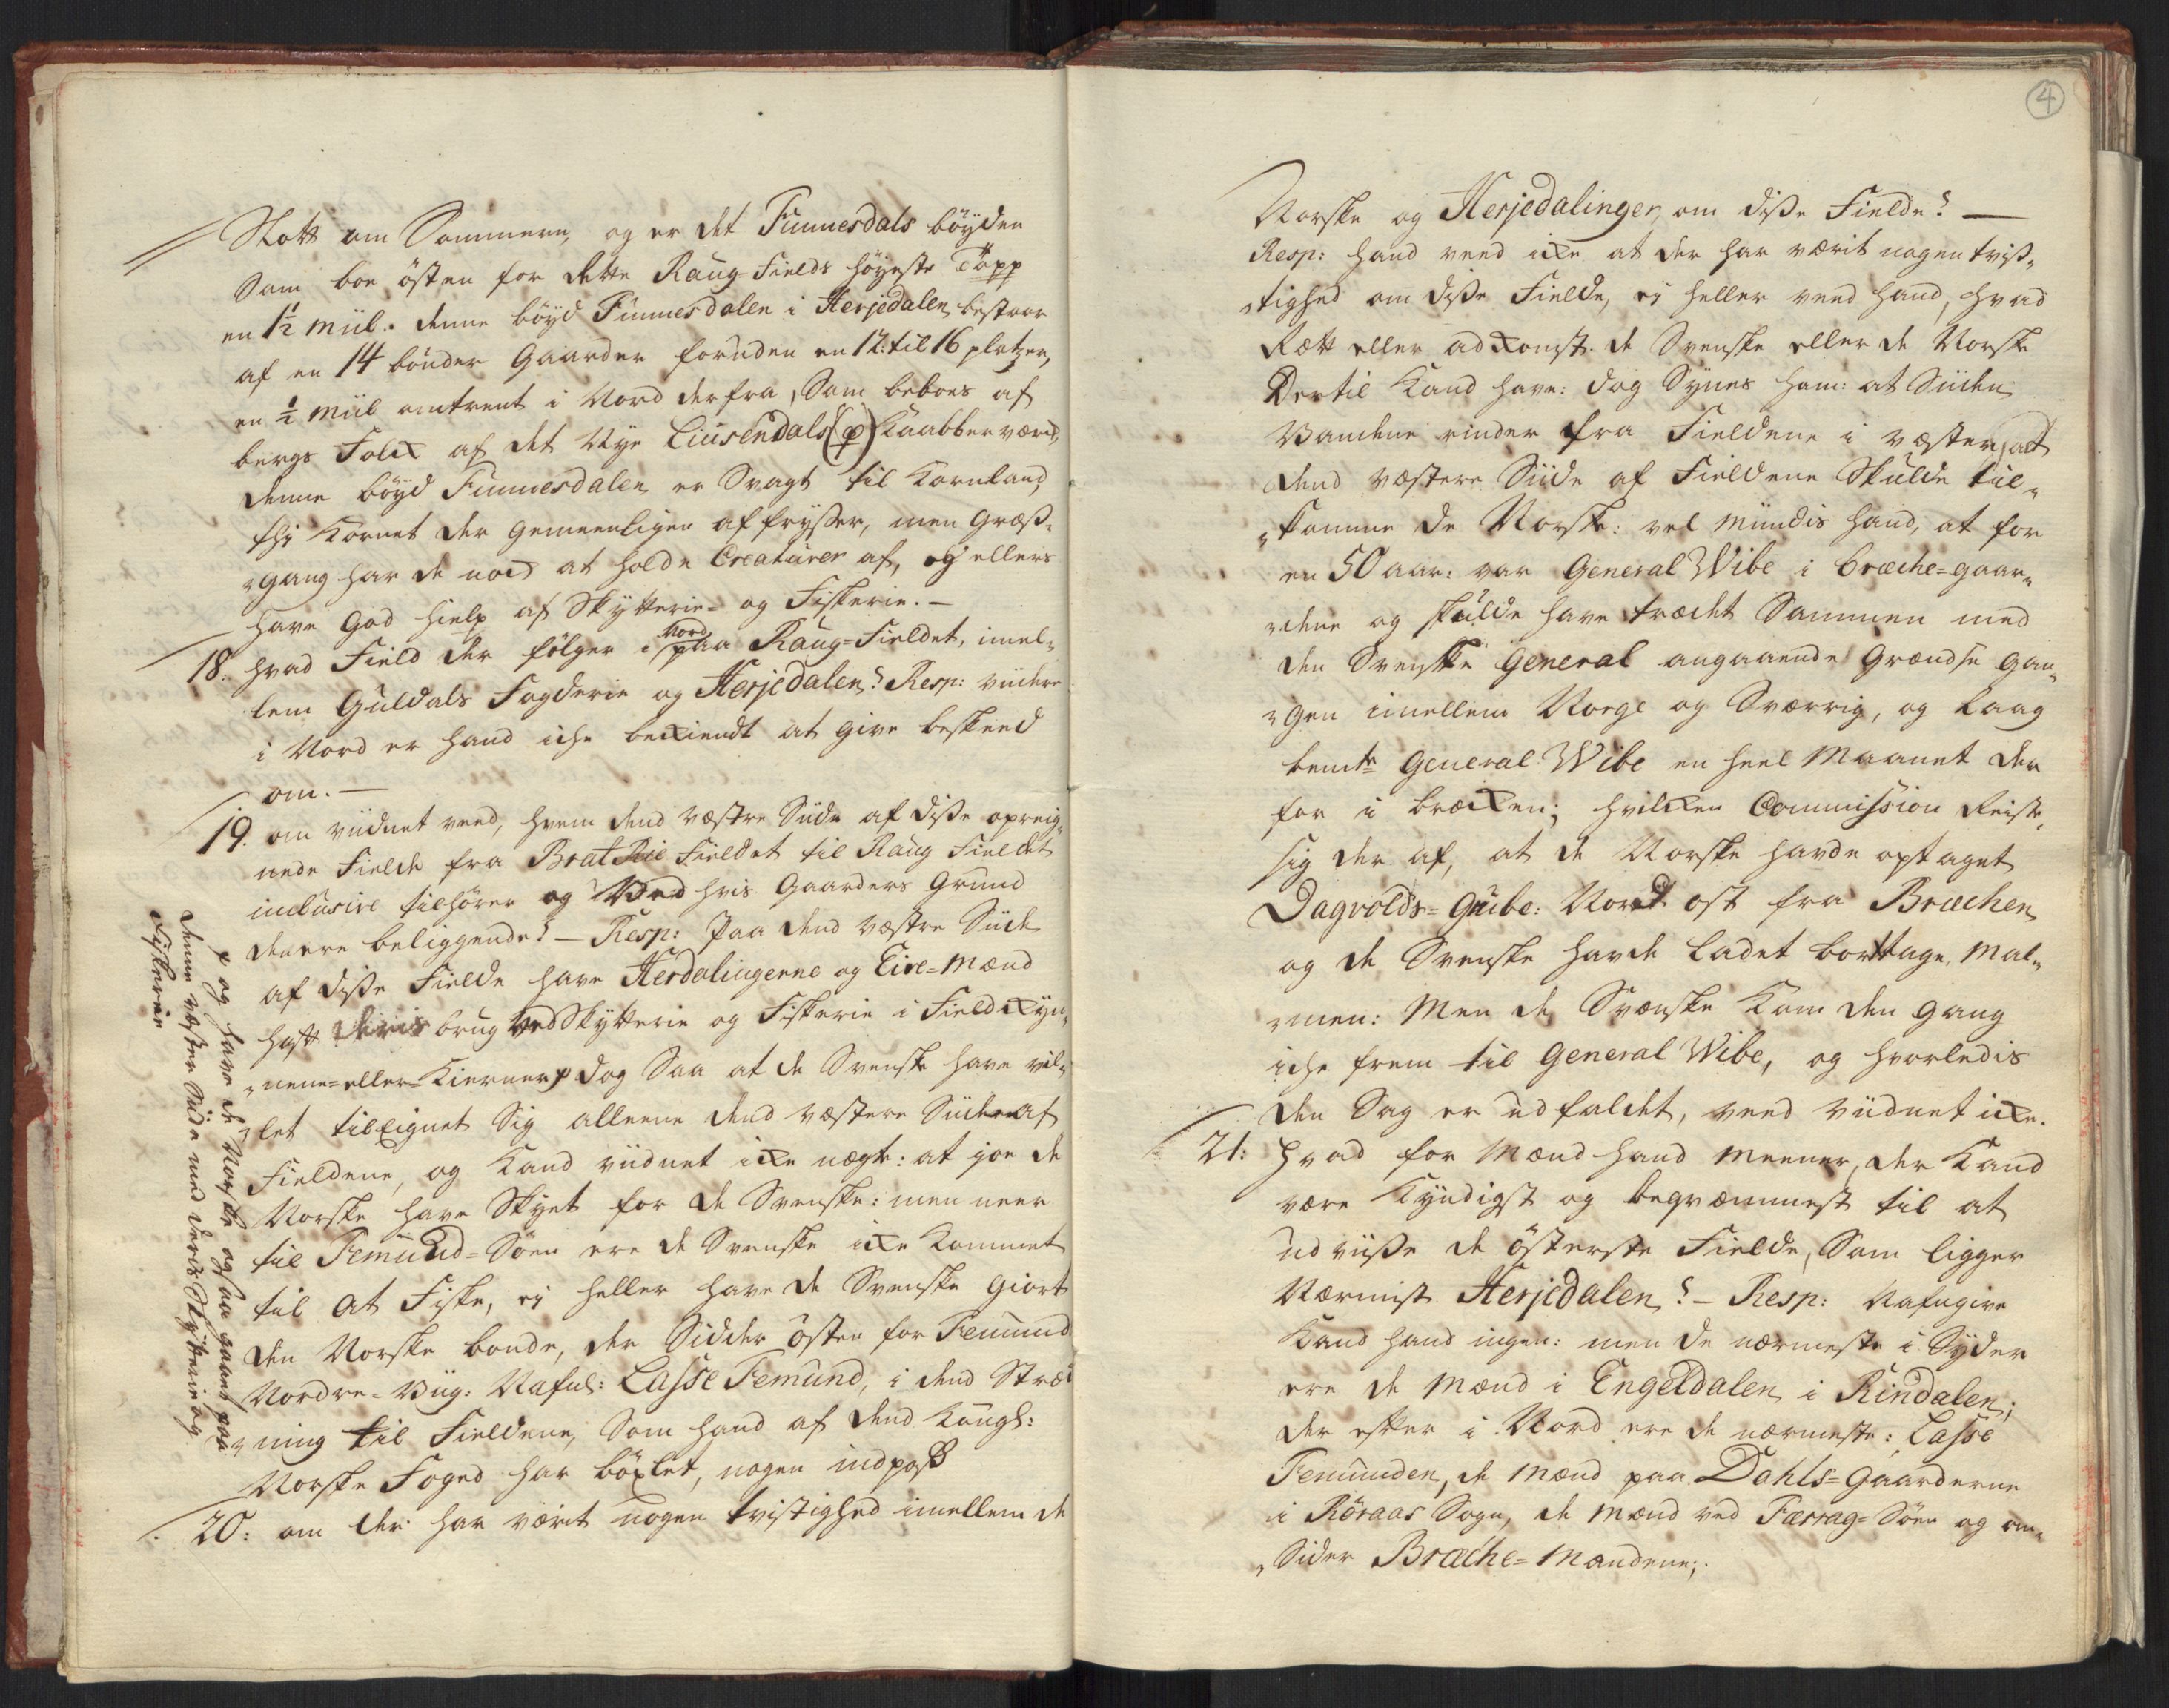 Slott om Sommeren, og er det Funnesdals böyden
Som boe östen for dette Raug-Fields höyeste Topp
en 1½ miil. denne böyd Funnesdalen i Herjedalen bestaar
af en 14 bönder Gaarder foruden en 12: til 16 platzer,
en ½ miil omtrent i Nord derfra, Som beboes af
bergs Folck af det Nye Liusendals (p) Kaabberværck,
denne böyd Funnesdalen er Svagt til Kornland,
thi Kornet der gemeenligen affrysser, men Græss-
gang har de nock at holde Creaturer af, og ellers
have God hielp af Skytterie- og Fiskerie. -
18. hvad Field der fölger i Nord paa Raug-Fieldet, imel-
lem Guldals Fogderie og Herjedalen? Resp: viidere
i Nord er hand iche bekiendt at give beskeed
om. -
19. om viidnet veed, hvem dend vestre Siide af disse opreig-
nede Fielde fra BratRie Fieldet til Raug Fieldet
inclusive tilhörer og Ved hvis Gaarders Grund
de ere beliggende? - Resp: Paa dend vestre Siide
af disse Fielde have Herdalingerne og Eire-Mænd
hafft deris brug ved Skytterie og Fiskerie i Field Kyn-
nene- eller Kierner # dog Saa at de Svenske have vil-
let tilEignet Sig alleene dend vestere Siide af
Fieldene, og Kand viidnet icke negte: at jo de
Norske have Skyet for de Svenske: men neer
til Femund-Söen ere de Svenske icke Kommet
til at Fiske, ej heller have de Svenske giort
den Norske bonde, der Sidder östen for Femund
Nordre-Viig: Nafnl: Lasse Femund, i dend Stræk-
ning til Fieldene, Som hand af dend Kongl:
Norske Foged har böxlet, nogen indpass
20: om der har værit nogen tvistighed imellem de
# og have de Norske ogsaa gaaet paa
denne vester Siide med deris Skytterie og
Fiskerie
4
Norske og Herjedalinger, om disse Fielde? -
Resp: hand veed icke at der har værit nogen tviss-
tighed om disse Fielde, ej heller veed hand, hvad
Rett eller adKomst. de Svenske eller de Norske
Dertil Kand have: dog Synes ham: at Siiden
Vandene rinder fra Fieldene i vester, at
dend vestere Siide af Fieldene Skulde til-
komme de Norske: vel mindis hand, at for
en 50 aar: var General Wibe i bræche-gaar-
dene og skulde have trædet Sammen med
den Svenske General angaaende Grændse gan-
gen imellem Norge og Sverrig, og laag
bemte General Wibe en heel Maanet der
for i bræcken; hvilcken Commission Reiste
sig der af, at de Norske havde optaget
Dagvolds-Grube: Nord ost fra Bræchen
og de Svenske havde ladet borttage mal-
men: Men de Svenske Kom den gang
iche frem til General Wibe, og hvorledis
den Sag er udfaldet, veed viidnet icke.
21: Hvad for Mænd hand meener, der Kand
være Kyndigst og beqvemmest til at
udviisse de österste Fielde, Som ligger
Nermist Herjedalen? - Resp: Nafngive
Kand hand ingen: men de nermeste i Syder
ere de Mænd i Engeldalen i Rindalen;
der efter i Nord ere de nermeste: Lasse
Femunden, de Mænd paa Dahls-Gaarderne
i Röraas Sogn, de Mænd ved Færrag-Söen og om-
Sider Bræche-Mændene;.